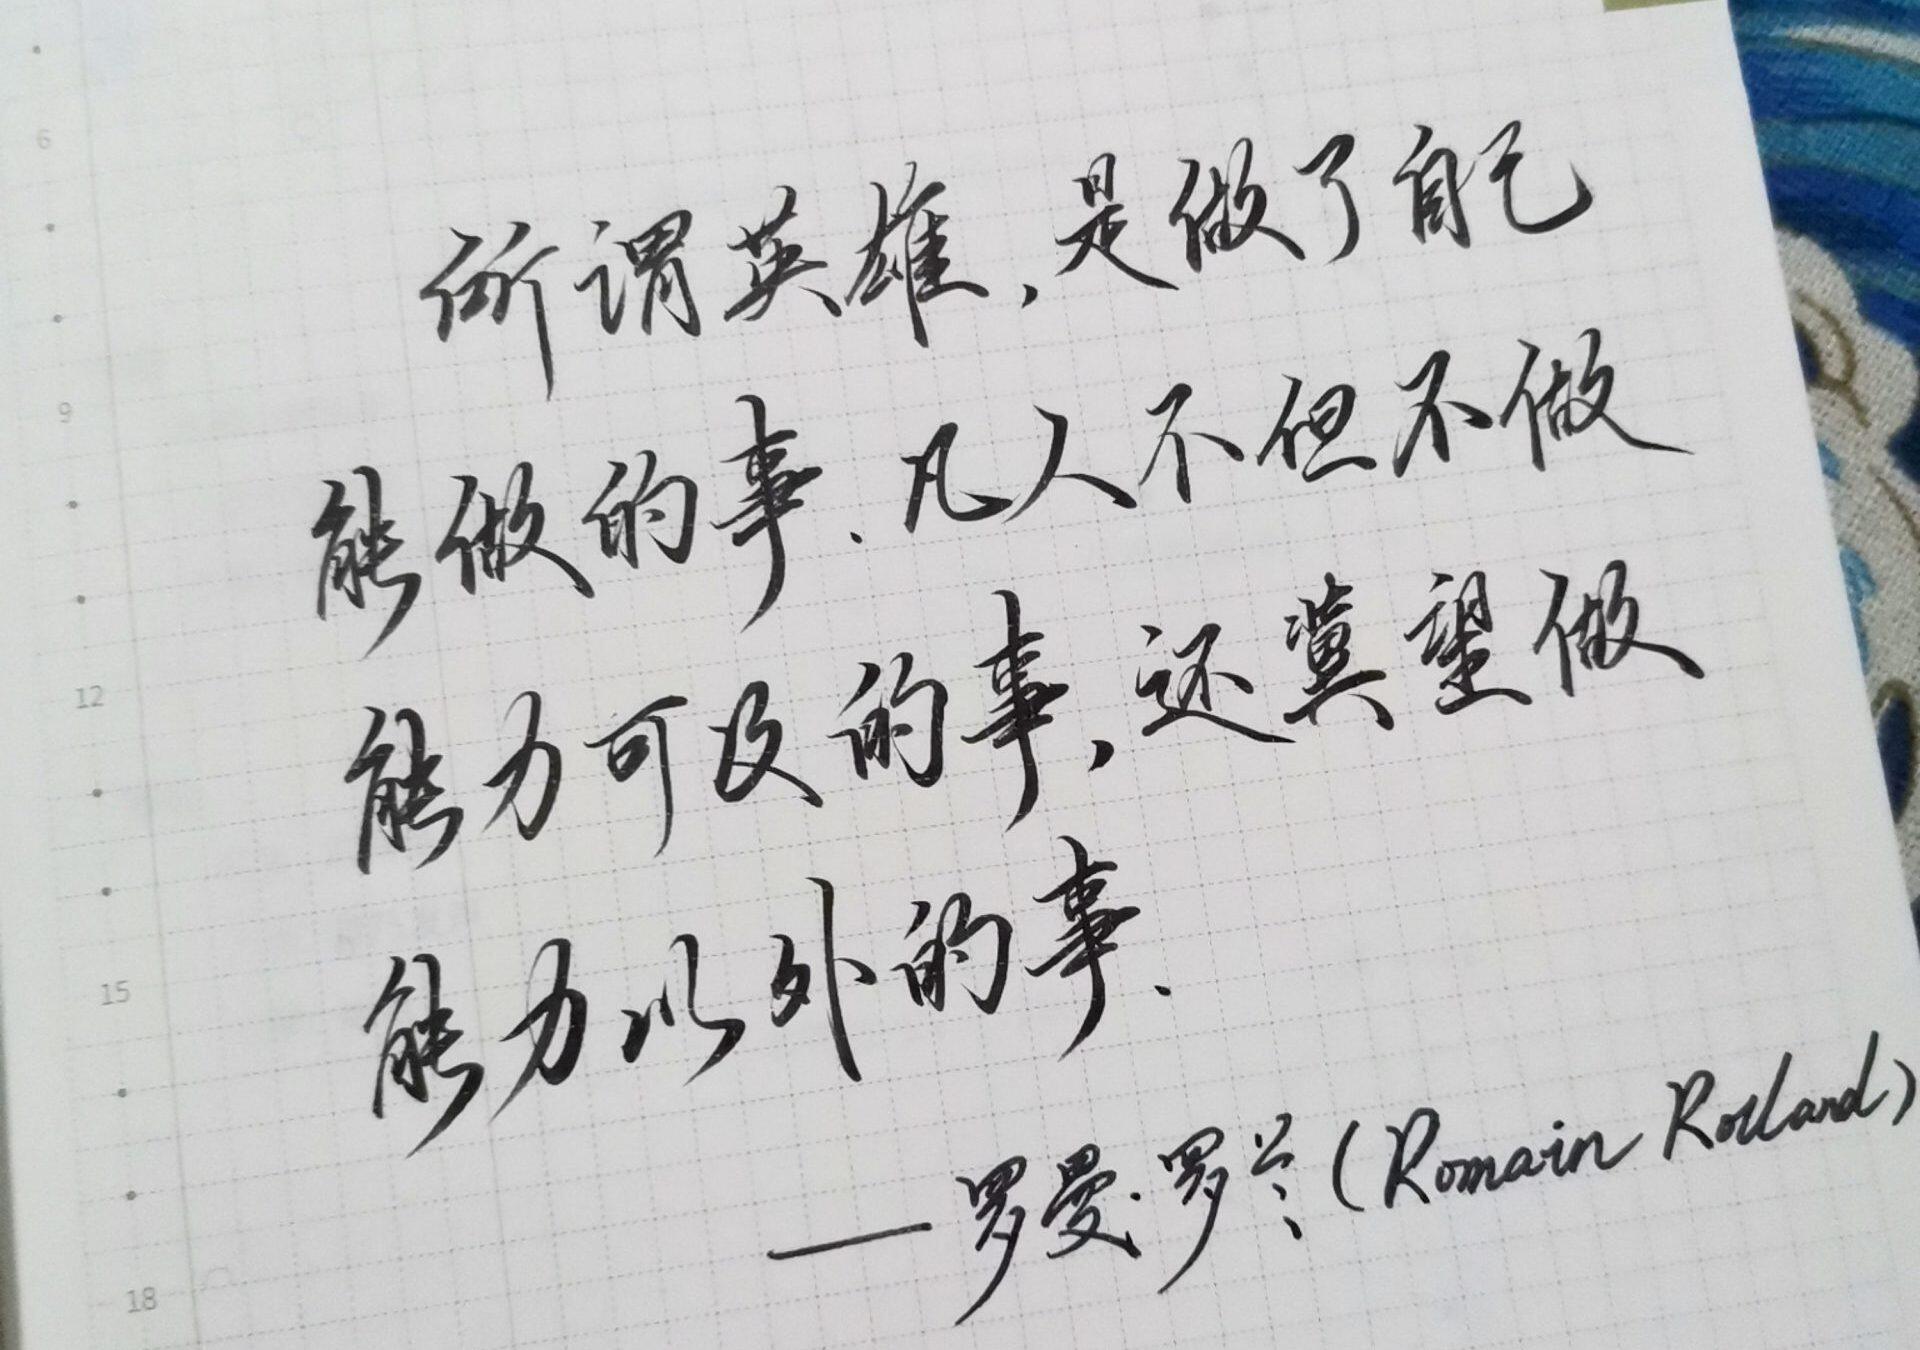 6
所谓英雄,是做了自己
9
能做的事.凡人不但不做
12
能力可及的事,还冀望做
15
能力以外的事.
——罗曼·罗兰(Romain Rolland)
18